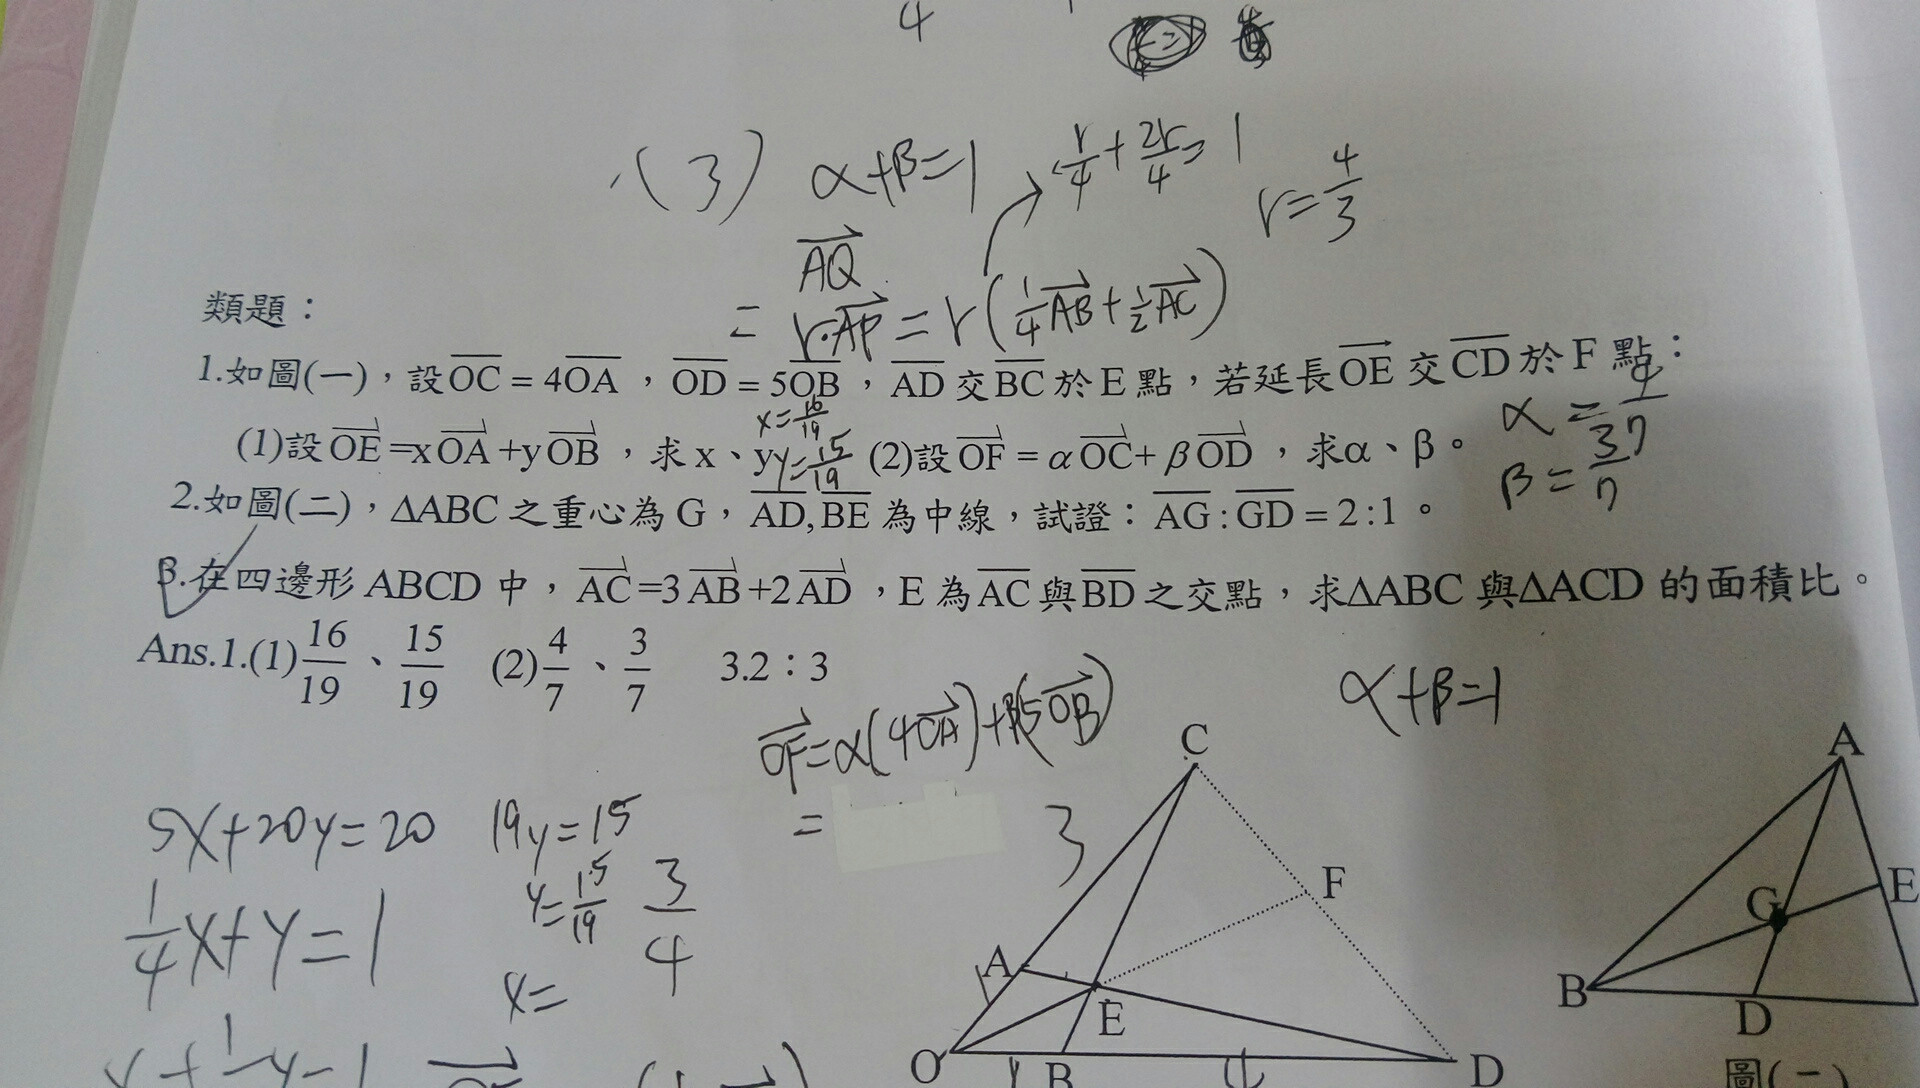 4
(3) α+β=1
r/4 + 2r/4 = 1
r = 4/3
AQ
= r·AP = r(1/4 AB + 1/2 AC)
類題：
1.如圖(一)，設OC = 4OA，OD = 5OB，AD 交 BC 於 E 點，若延長 OE 交 CD 於 F 點：
x=16/19
α = 4/7
(1)設 OE=xOA+yOB，求 x、y y=15/19 (2)設 OF = αOC+βOD，求α、β。
β = 3/7
2.如圖(二)，ΔABC 之重心為 G，AD,BE 為中線，試證：AG:GD = 2:1。
3.在四邊形 ABCD 中，AC=3AB+2AD，E 為 AC 與 BD 之交點，求ΔABC 與ΔACD 的面積比。
Ans.1.(1)16/19、15/19 (2)4/7、3/7 3.2：3
α+β=1
OF=α(4OA)+β(5OB)
=
5x+20y=20
19y=15
1/4 x+y=1
y=15/19
3/4
x=
C
3
F
A
E
O
B
D
A
E
G
B
D
圖(二)